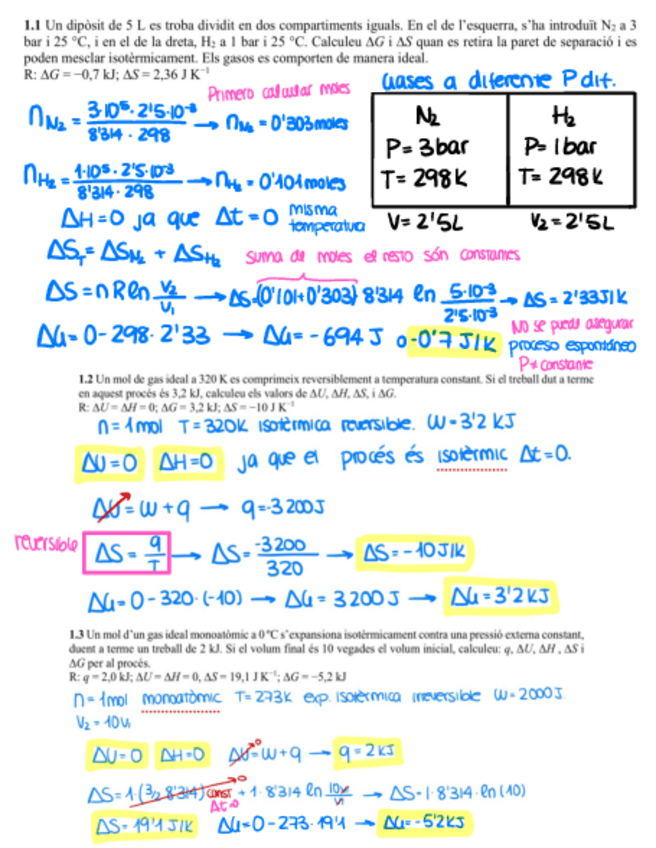 1.1 Un dipòsit de 5 L es troba dividit en dos compartiments iguals. En el de l'esquerra, s'ha introduït N₂ a 3
bar i 25 °C, i en el de la dreta, H₂ a 1 bar i 25 °C. Calculeu ΔG i ΔS quan es retira la paret de separació i es
poden mesclar isotèrmicament. Els gasos es comporten de manera ideal.
R: ΔG = −0,7 kJ; ΔS = 2,36 J K⁻¹
Primero calcular moles
Gases a diferente P dit.
n_N₂ = 3·10⁵·2'5·10⁻³ / 8'314·298 → n_N₂ = 0'303 moles
N₂
P= 3bar
T= 298K
V= 2'5L
H₂
P= 1bar
T= 298K
V₂= 2'5L
n_H₂ = 1·10⁵·2'5·10⁻³ / 8'314·298 → n_H₂ = 0'101 moles
ΔH=0 ja que Δt=0 misma temperatura
ΔS_T = ΔS_N₂ + ΔS_H₂ suma de moles el resto són constantes
ΔS = n R ln V₂/V₁ → ΔS=(0'101+0'303) 8'314 ln 5·10⁻³/2'5·10⁻³ → ΔS = 2'33J/K
ΔG= 0-298·2'33 → ΔG= -694 J o -0'7 J/K
No se puede asegurar
proceso espontáneo
P≠constante
1.2 Un mol de gas ideal a 320 K es comprimeix reversiblement a temperatura constant. Si el treball dut a terme
en aquest procés és 3,2 kJ, calculeu els valors de ΔU, ΔH, ΔS, i ΔG.
R: ΔU = ΔH = 0; ΔG = 3,2 kJ; ΔS = −10 J K⁻¹
n=1mol T=320K isotèrmica reversible. W=3'2 KJ
ΔU=0 ΔH=0 ja que el procés és isotèrmic Δt=0.
ΔU = W + q → q=-3200J
reversible ΔS = q/T → ΔS= -3200/320 → ΔS = -10 J/K
ΔG= 0-320·(-10) → ΔG = 3200J → ΔG = 3'2 KJ
1.3 Un mol d'un gas ideal monoatòmic a 0 °C s'expansiona isotèrmicament contra una pressió externa constant,
duent a terme un treball de 2 kJ. Si el volum final és 10 vegades el volum inicial, calculeu: q, ΔU, ΔH , ΔS i
ΔG per al procés.
R: q = 2,0 kJ; ΔU = ΔH = 0, ΔS = 19,1 J K⁻¹; ΔG = −5,2 kJ
n=1mol monoatòmic T=273K exp. isotèrmica irreversible W=2000J.
V₂ = 10V₁
ΔU=0 ΔH=0 ΔU=W+q → q=2KJ
ΔS= 1·(3/2 8'314) const + 1·8'314 ln 10V/V → ΔS=1·8'314·ln(10)
Δt=0
ΔS= 19'1 J/K ΔG=0-273·19'1 → ΔG=-5'2KJ